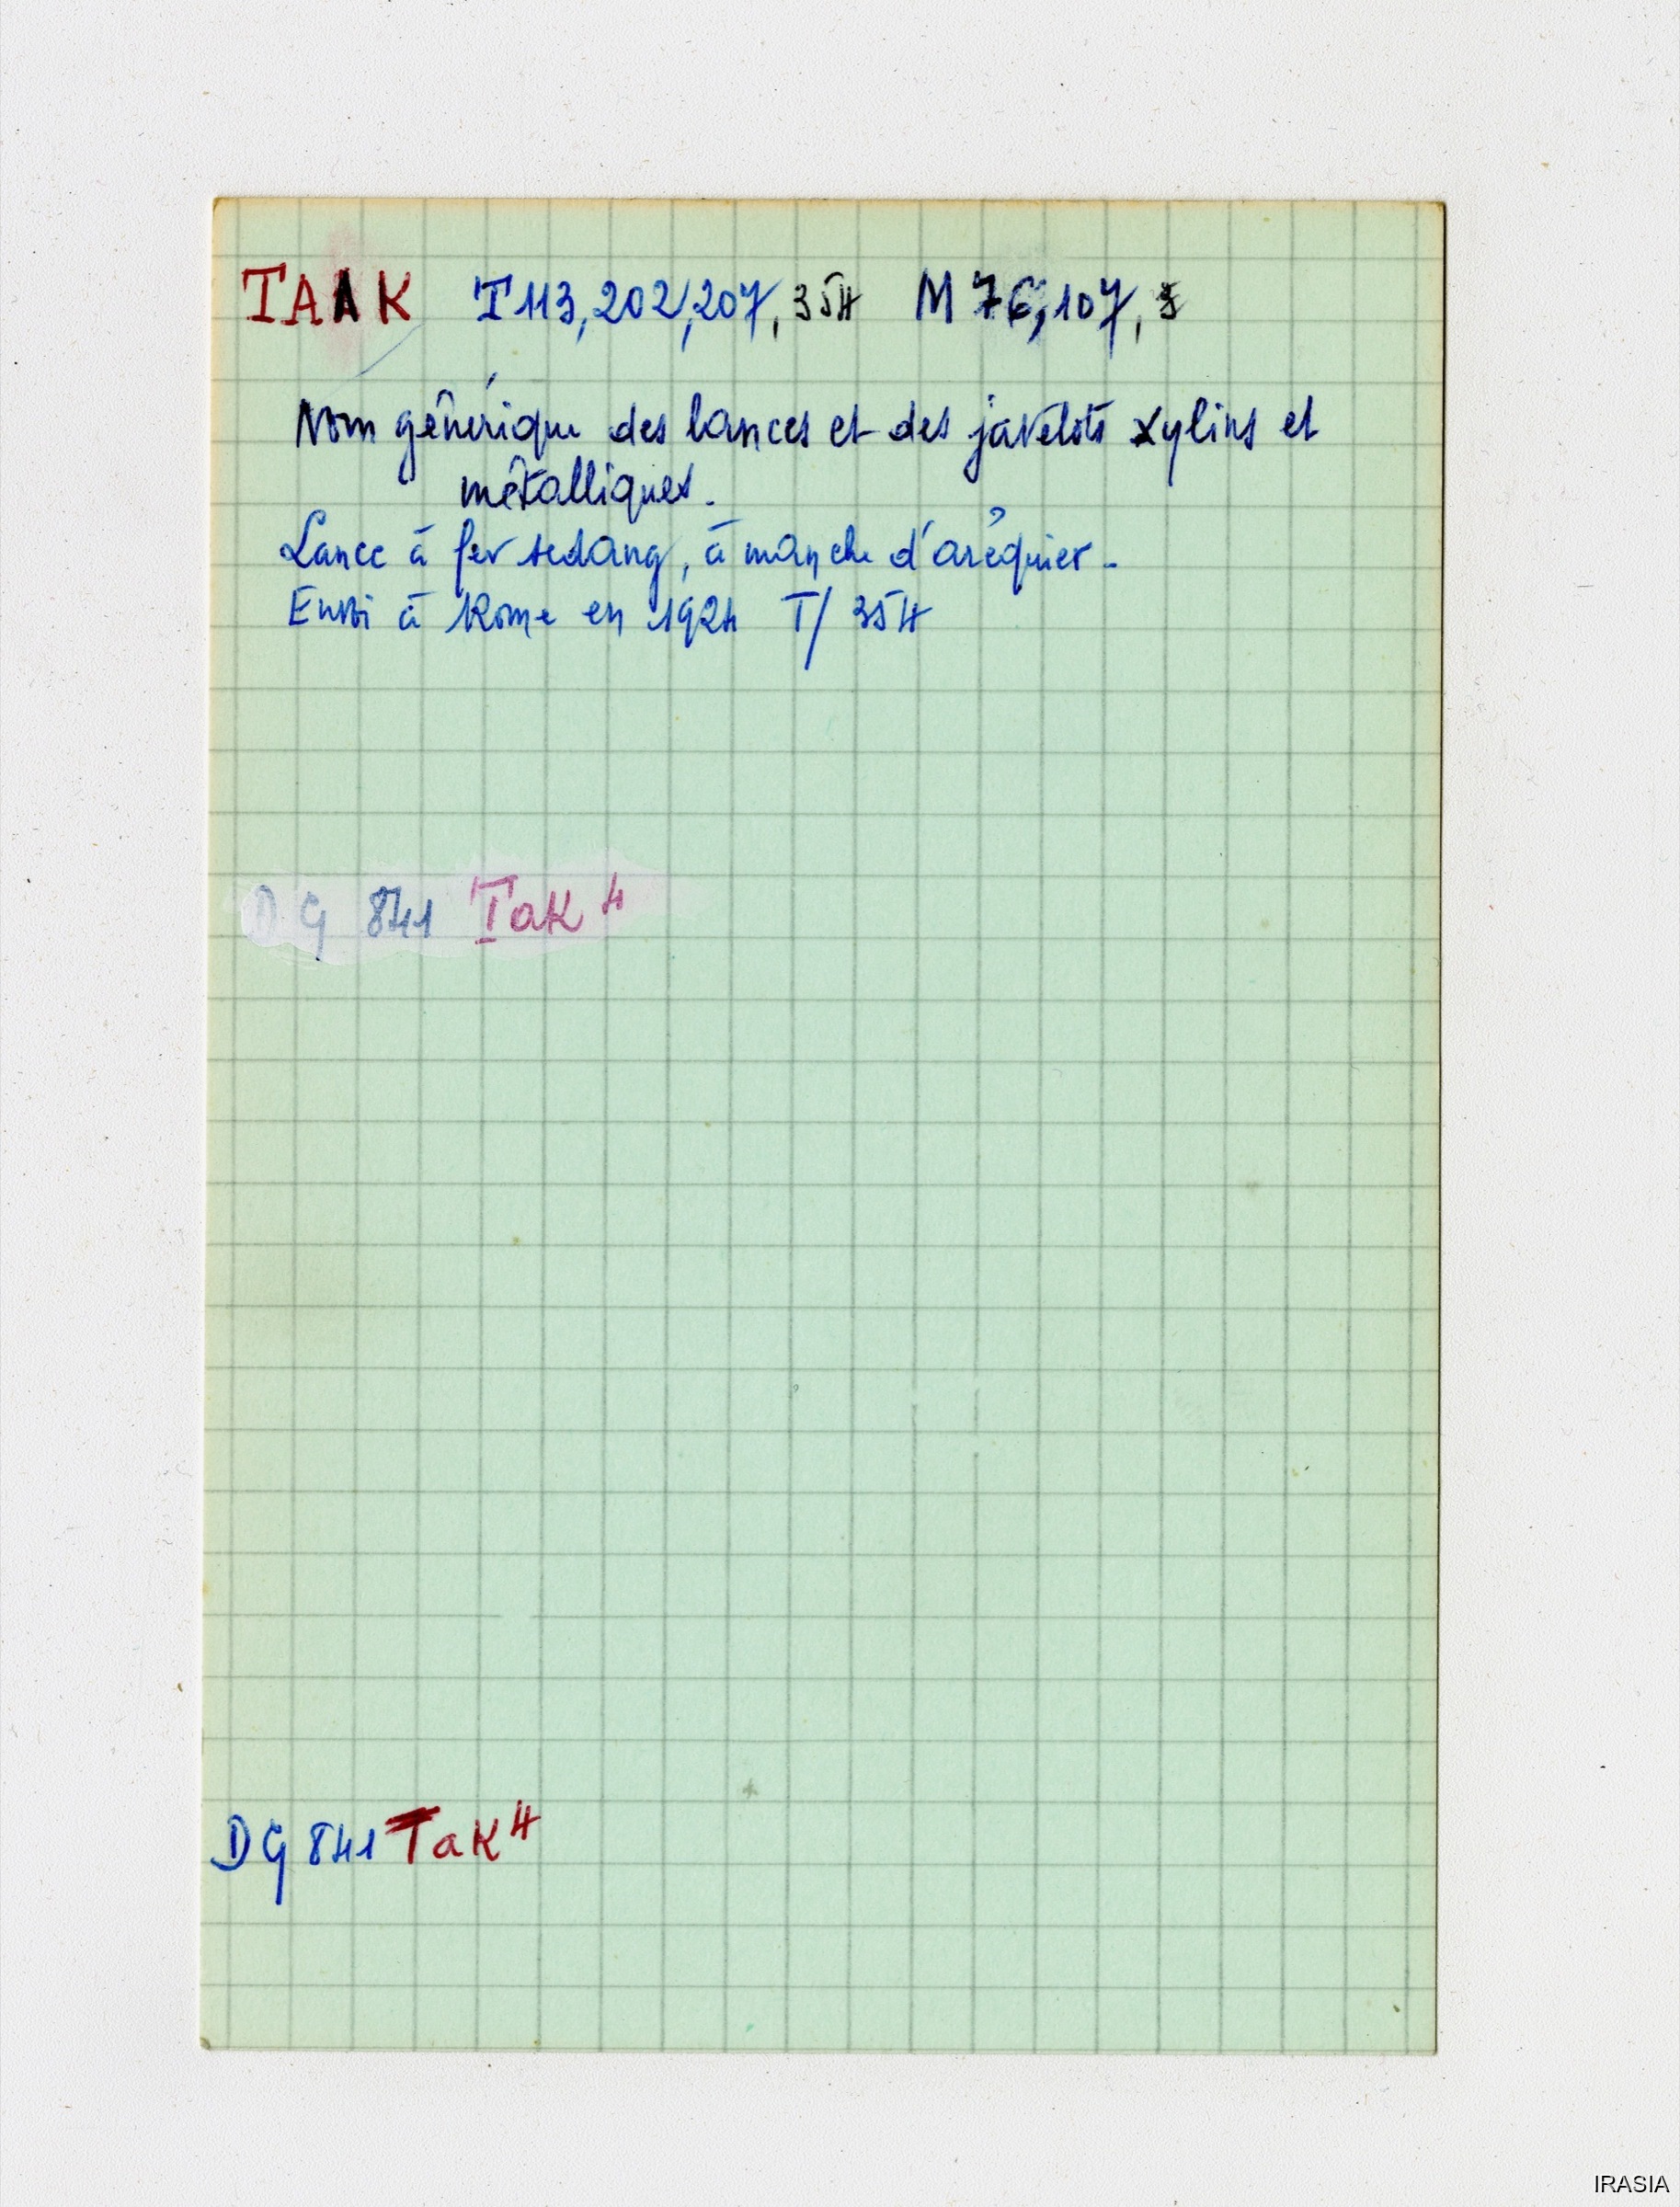 TAAK T 113, 202, 207, 354 M 76, 107, 3
Nom générique des lances et des javelots xylins et
métalliques.
Lance à fer sedang, à manche d'aréquier.
Envoi à Rome en 1924 T/ 354
DG 841 Tak 4
DG 841 Tak 4
IRASIA